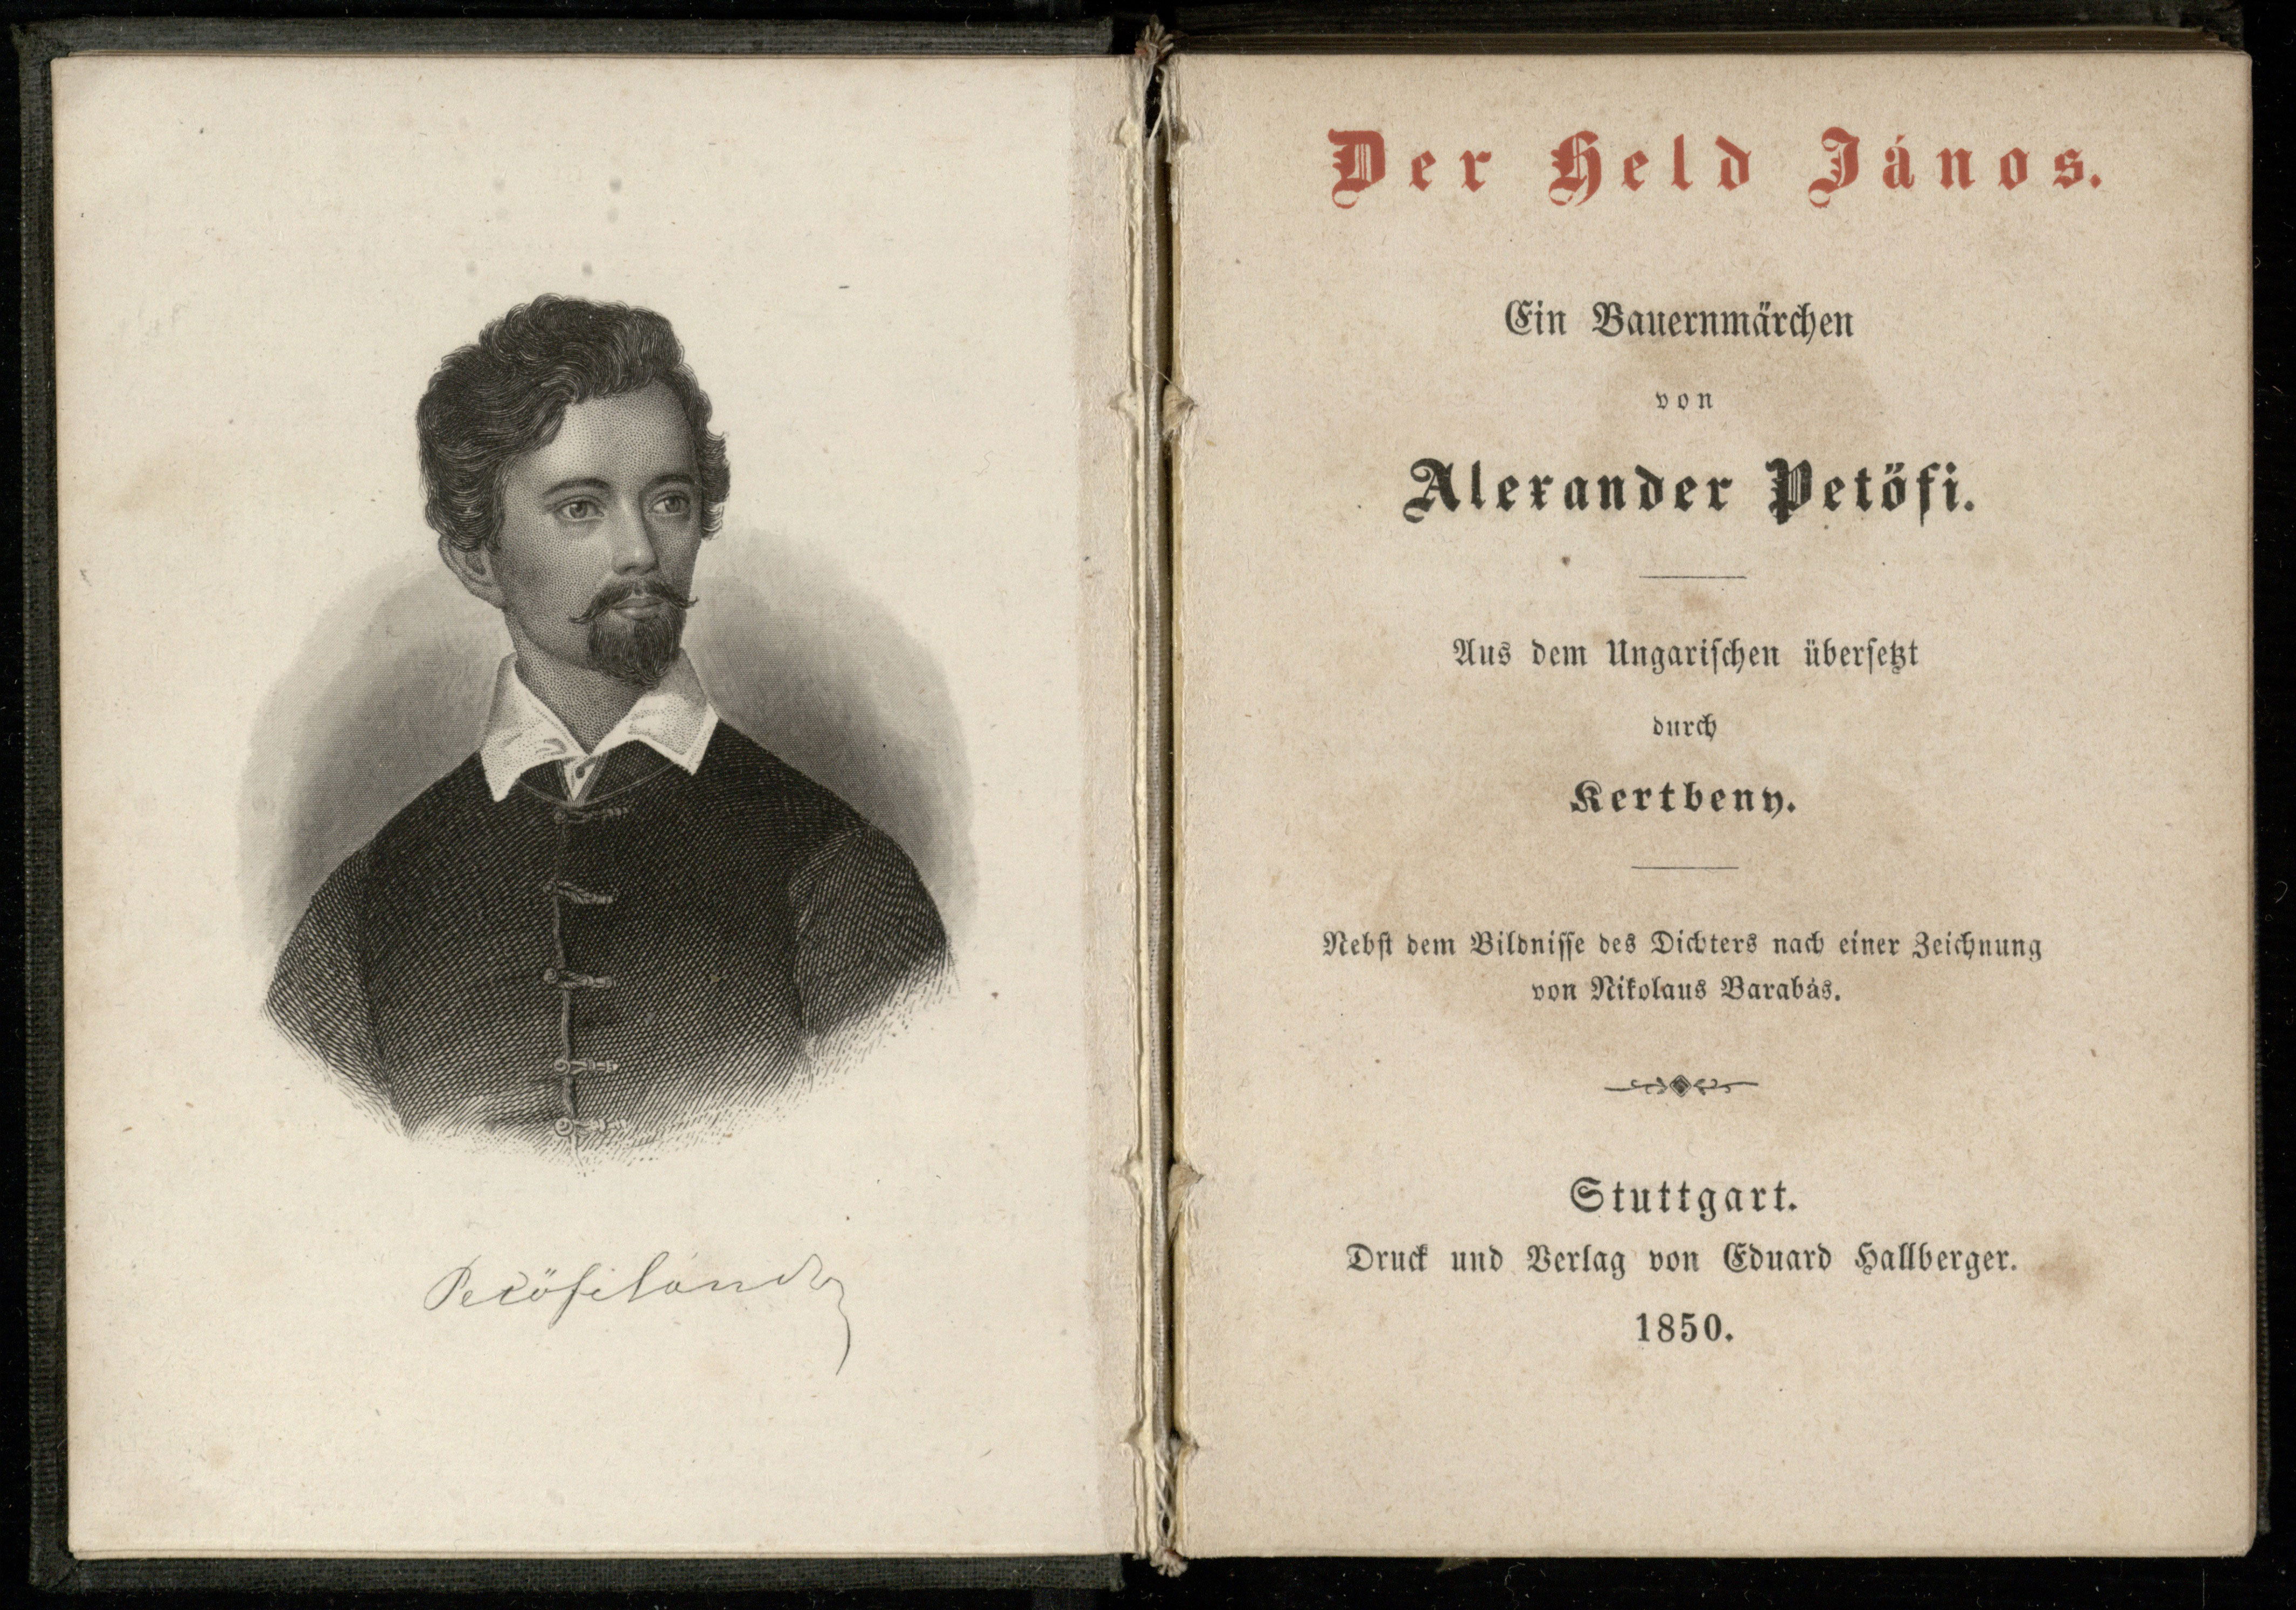 Petöfi Sándor
Der Held János.
Ein Bauernmärchen
von
Alexander Petöfi.
Aus dem Ungarischen übersetzt
durch
Kertbeny.
Nebst dem Bildnisse des Dichters nach einer Zeichnung
von Nikolaus Barabás.
Stuttgart.
Druck und Verlag von Eduard Hallberger.
1850.